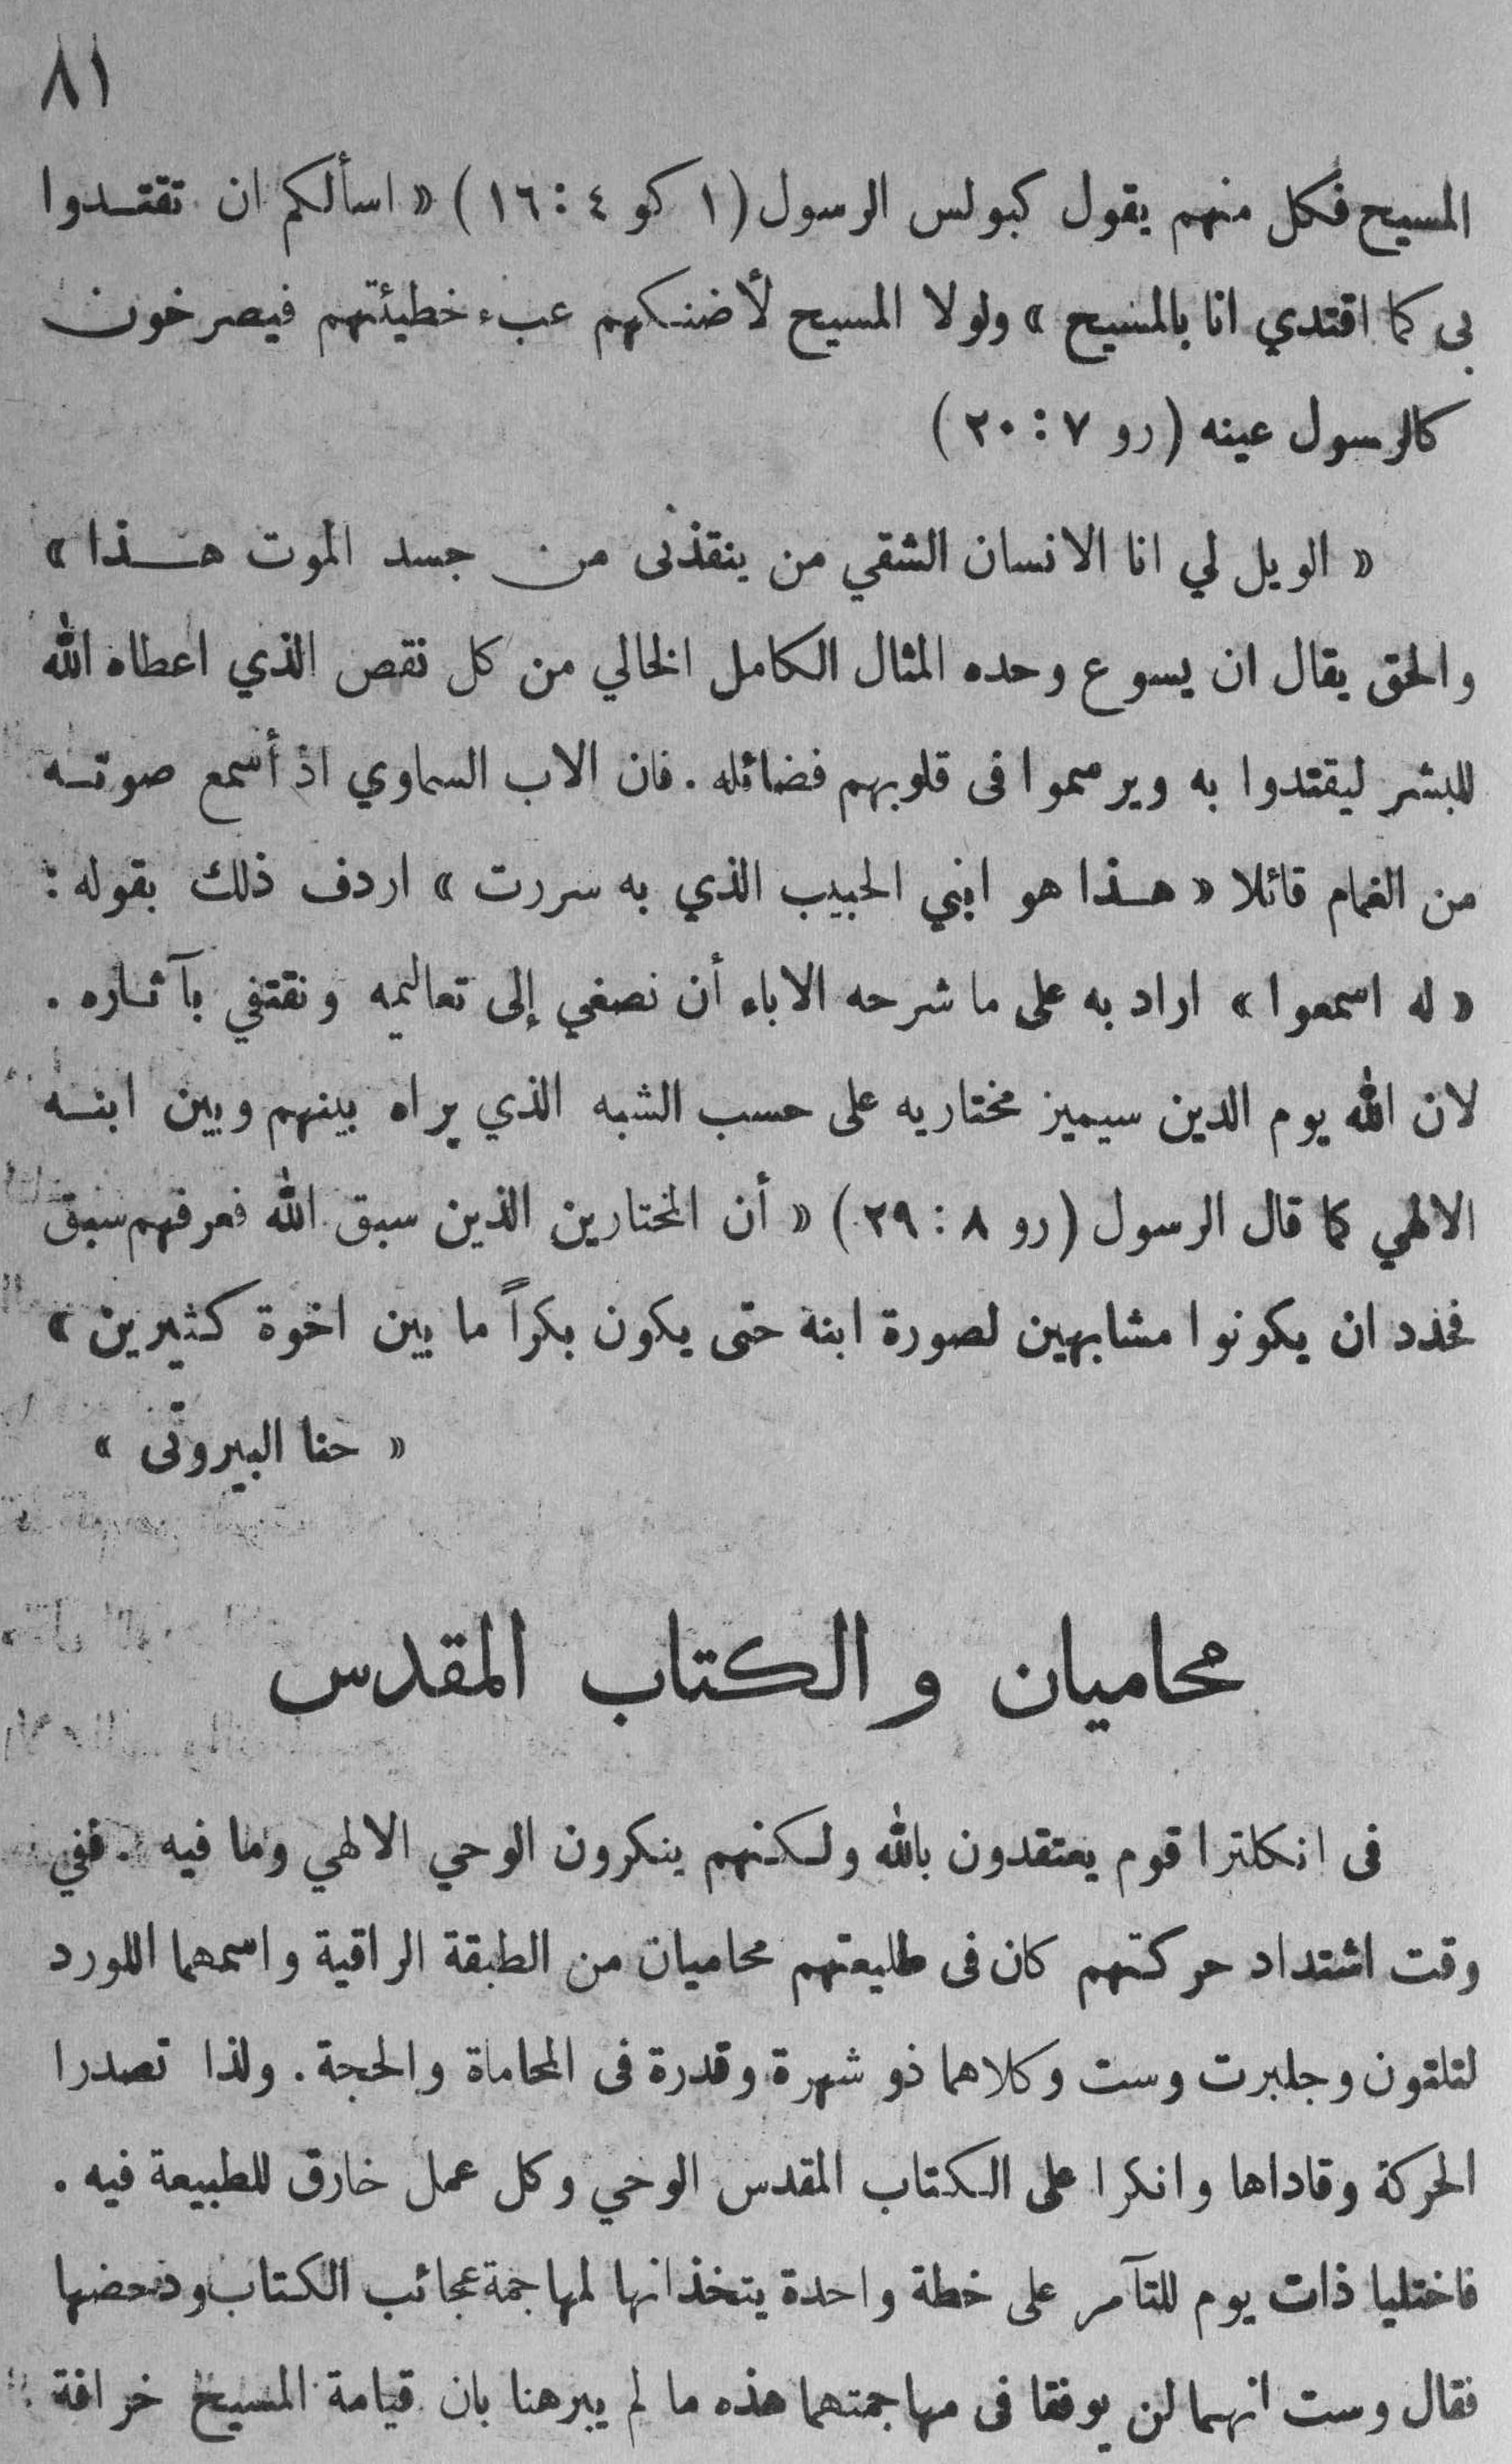 ٨١
المسيح فكل منهم يقول كبولس الرسول (١ كو ٤ : ١٦) « اسألكم ان تقتدوا
بى كما اقتدي انا بالمسيح » ولولا المسيح لأضنكهم عبء خطيئتهم فيصرخون
كالرسول عينه (رو ٧ : ٢٠)
« الويل لي انا الانسان الشقي من ينقذنى من جسد الموت هذا »
والحق يقال ان يسوع وحده المثال الكامل الخالي من كل نقص الذي اعطاه الله
للبشر ليقتدوا به ويرسموا فى قلوبهم فضائله . فان الاب السماوي اذ أسمع صوته
من الغمام قائلا « هذا هو ابني الحبيب الذي به سررت » اردف ذلك بقوله :
« له اسمعوا » اراد به على ما شرحه الاباء أن نصغي إلى تعاليمه ونقتفي بآثاره .
لان الله يوم الدين سيميز مختاريه على حسب الشبه الذي يراه بينهم وبين ابنه
الالهي كما قال الرسول (رو ٨ : ٢٩) « أن المختارين الذين سبق الله فعرفهم سبق
فحدد ان يكونوا مشابهين لصورة ابنه حتى يكون بكراً ما بين اخوة كثيرين »
« حنا البيروتى »
محاميان والكتاب المقدس
فى انكلترا قوم يعتقدون بالله ولكنهم ينكرون الوحي الالهي وما فيه . ففي
وقت اشتداد حركتهم كان فى طليعتهم محاميان من الطبقة الراقية واسمهما اللورد
لتلتون وجلبرت وست وكلاهما ذو شهرة وقدرة فى المحاماة والحجة . ولذا تصدرا
الحركة وقاداها وانكرا على الكتاب المقدس الوحي وكل عمل خارق للطبيعة فيه .
فاختليا ذات يوم للتآمر على خطة واحدة يتخذانها لمهاجمة عجائب الكتاب ودحضها
فقال وست انهما لن يوفقا فى مهاجمتهما هذه ما لم يبرهنا بان قيامة المسيح خرافة